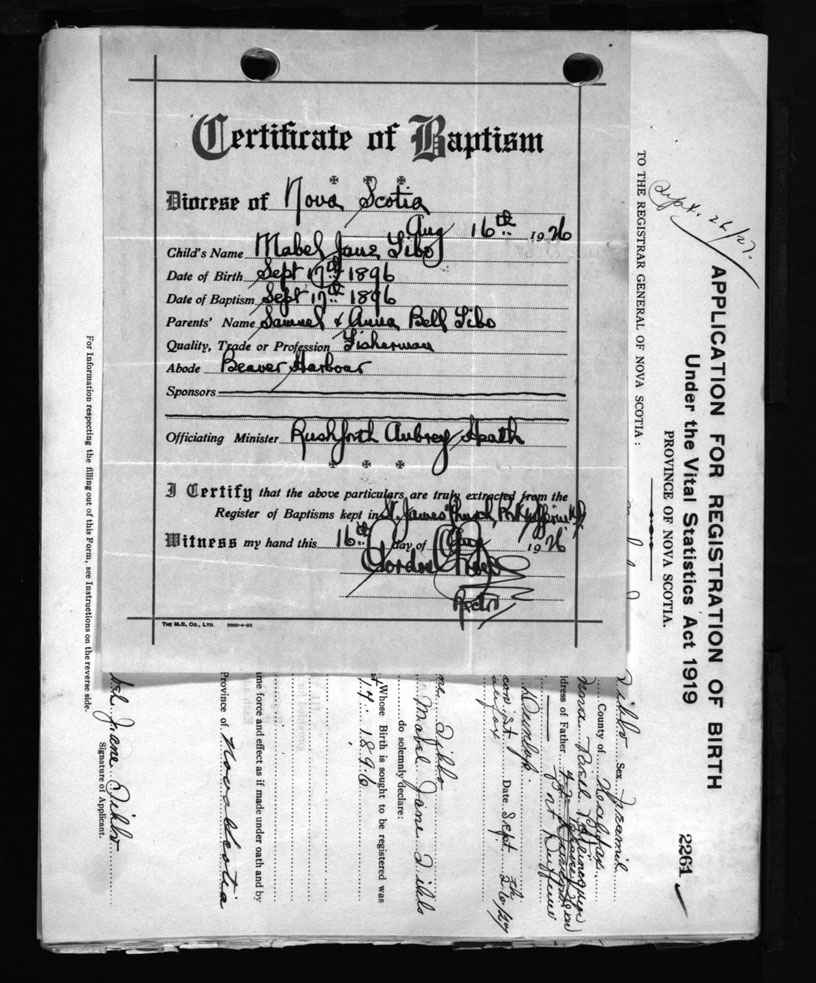 Certificate of Baptism
Diocese of Nova Scotia
Aug 16th 1926
Child's Name Mabel Jane Libo
Date of Birth Sept 17th 1896
Date of Baptism Sept 17th 1896
Parents' Name Samuel & Anna Bell Libo
Quality, Trade or Profession Fisherman
Abode Beaver Harbour
Sponsors
Officiating Minister Rushforth Aubrey Heath
I Certify that the above particulars are truly extracted from the
Register of Baptisms kept in St. James Church, Port
Witness my hand this 16th day of Aug 1926
Rector
THE M.B. CO., LTD.
Sept. 26/27.
APPLICATION FOR REGISTRATION OF BIRTH
2261
Under the Vital Statistics Act 1919
PROVINCE OF NOVA SCOTIA.
TO THE REGISTRAR GENERAL OF NOVA SCOTIA:
Sex
County of Halifax
dress of Father
Port Dufferin
Dunlop.
Date Sept 26th/27
Mabel Jane
do solemnly declare:
Whose Birth is sought to be registered was
17 1896
ume force and effect as if made under oath and by
Province of Nova Scotia
Jane
Signature of Applicant.
For Information respecting the filling out of this Form, see Instructions on the reverse side.